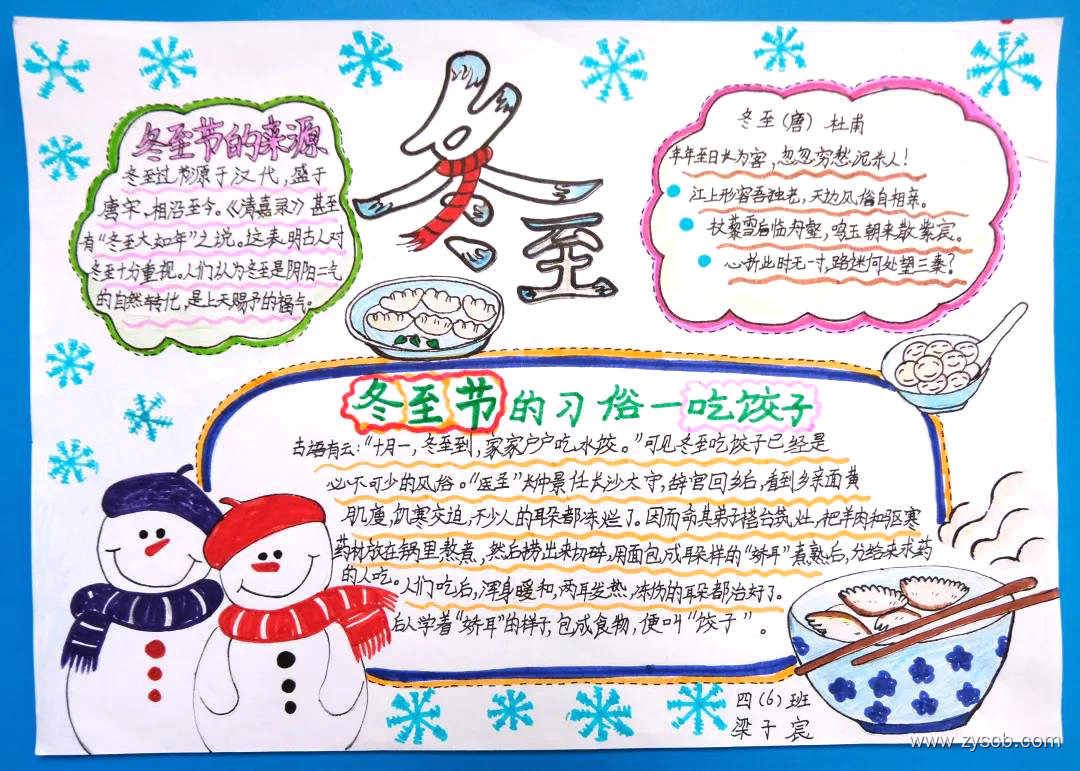 冬至
冬至节的来源
冬至过节源于汉代，盛于
唐宋，相沿至今。《清嘉录》甚至
有“冬至大如年”之说。这表明古人对
冬至十分重视。人们认为冬至是阴阳二气
的自然转化，是上天赐予的福气。
冬至（唐） 杜甫
年年至日长为客，忽忽穷愁泥杀人！
江上形容吾独老，天边风俗自相亲。
杖藜雪后临丹壑，鸣玉朝来散紫宸。
心折此时无一寸，路迷何处望三秦？
冬至节的习俗一吃饺子
古语有云：“十月一，冬至到，家家户户吃水饺。”可见冬至吃饺子已经是
必不可少的风俗。“医圣”张仲景任长沙太守，辞官回乡后，看到乡亲面黄
肌瘦，饥寒交迫，不少人的耳朵都冻烂了。因而命其弟子搭台筑灶，把羊肉和驱寒
药材放在锅里熬煮，然后捞出来切碎，用面包成耳朵样的“娇耳”煮熟后，分给来求药
的人吃。人们吃后，浑身暖和，两耳发热，冻伤的耳朵都治好了。
后人学着“娇耳”的样子，包成食物，便叫“饺子”。
四（6）班
梁子宸
www.zyscb.com